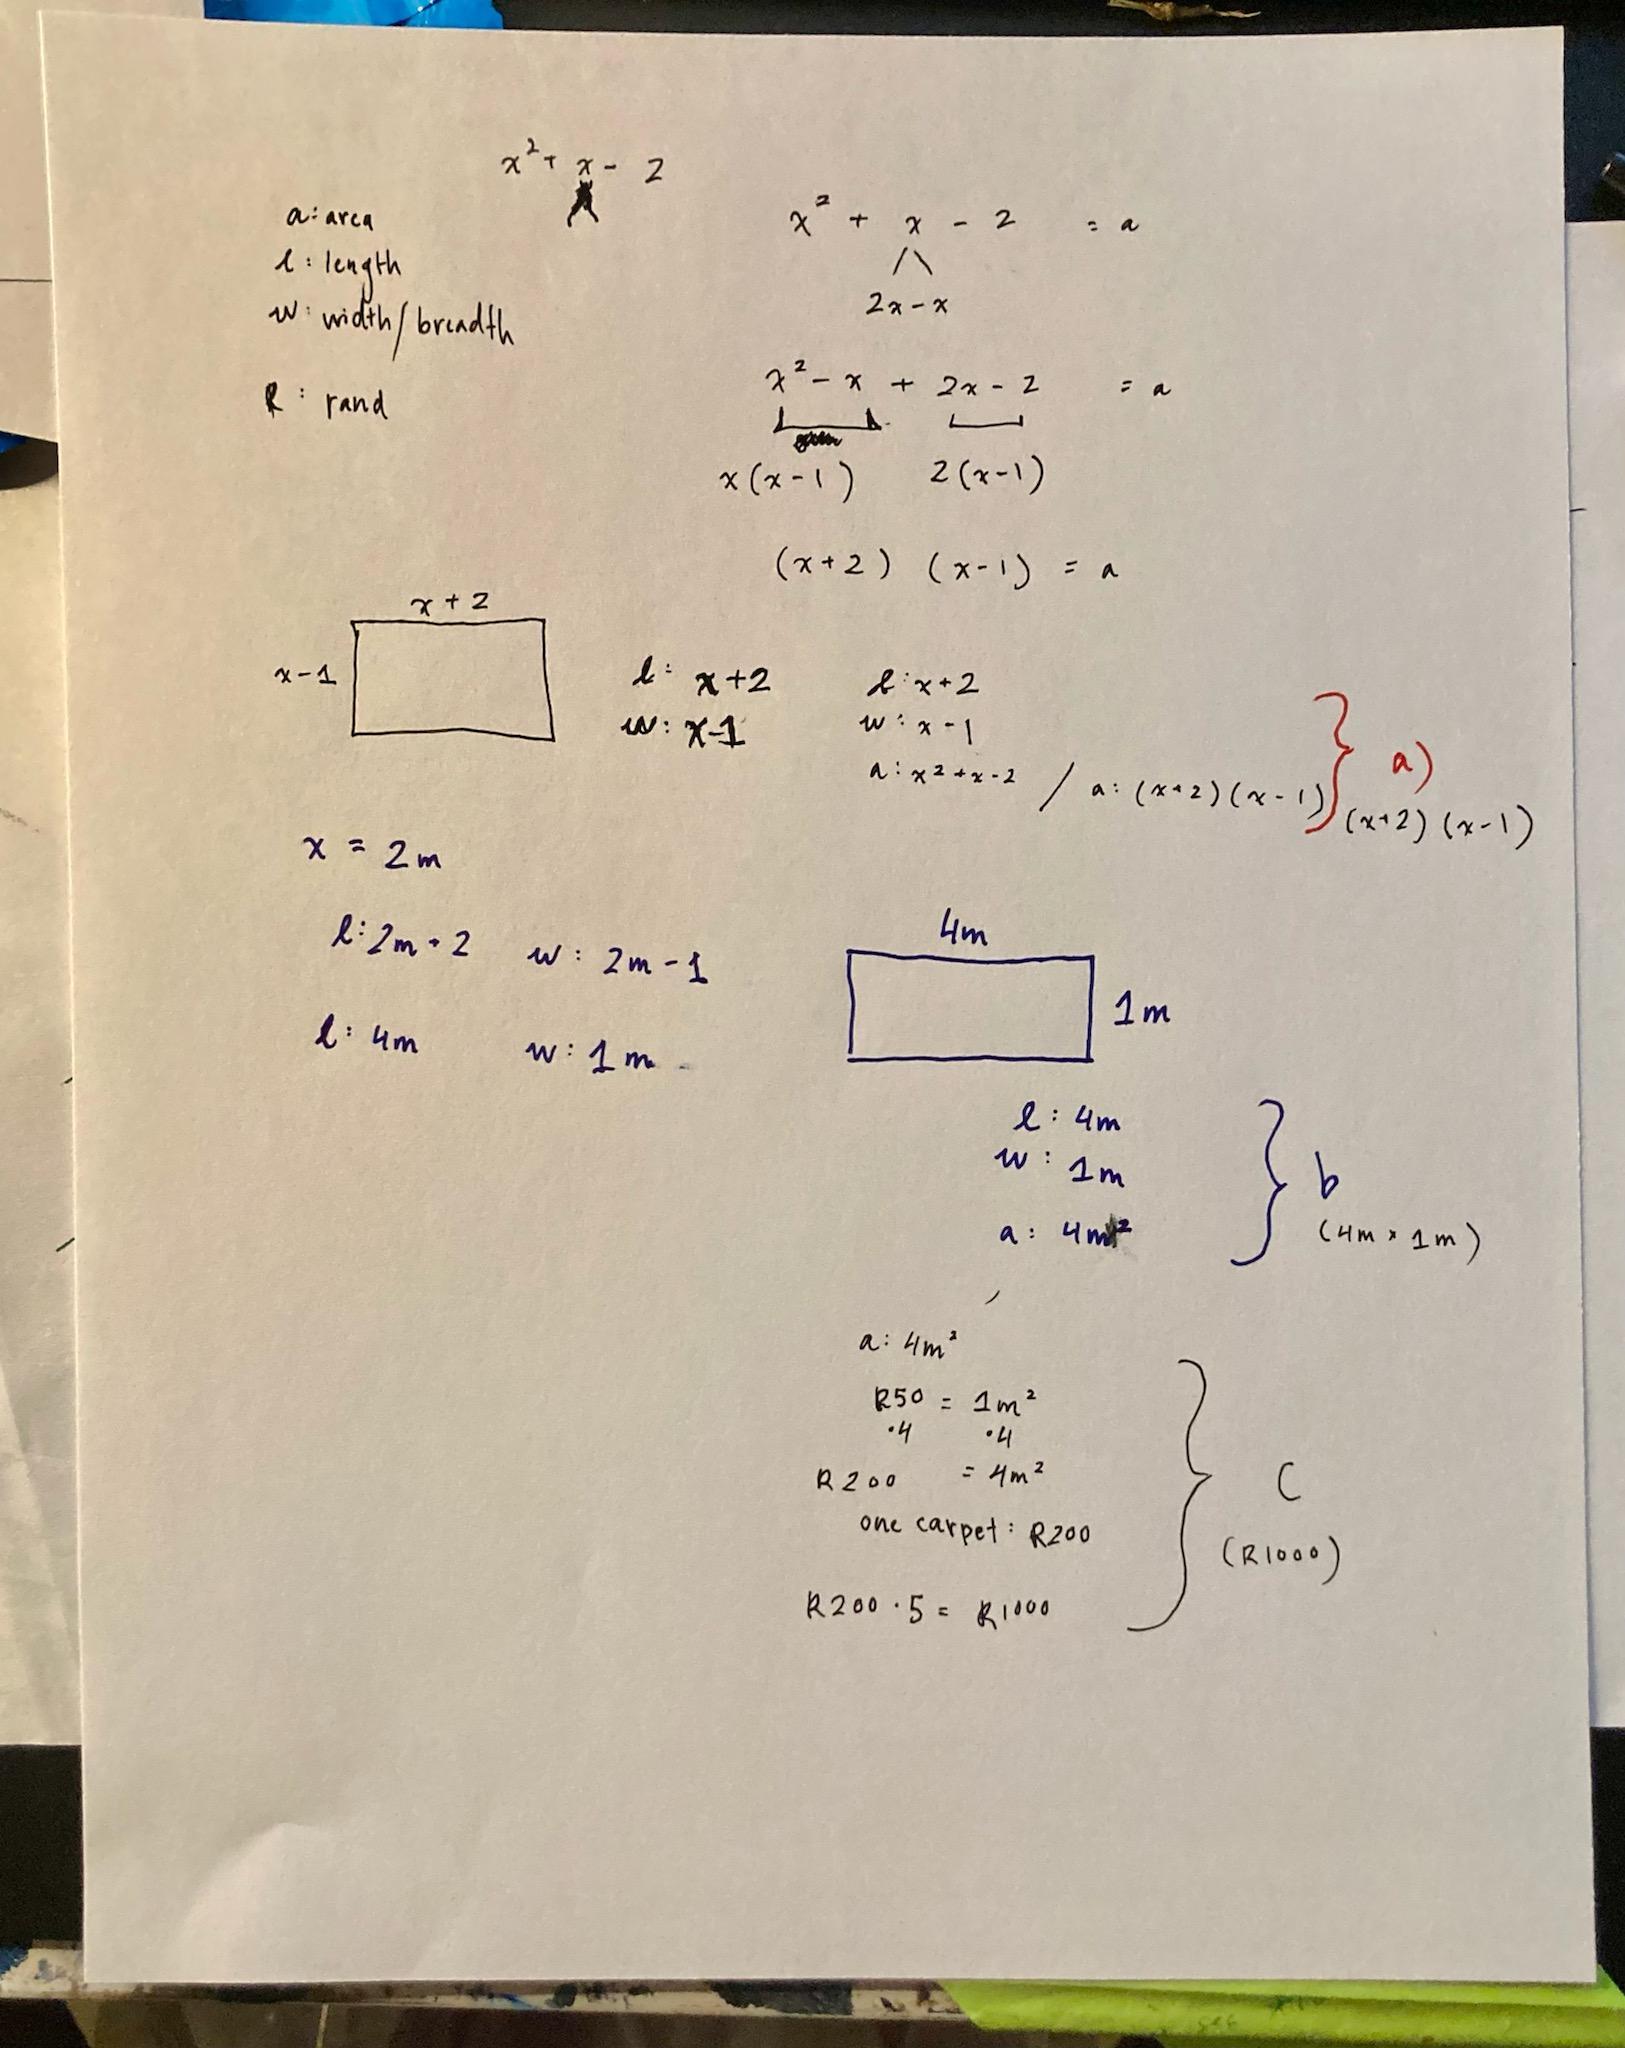 x² + x - 2
a: area
l: length
w: width/breadth
R: rand
x² + x - 2 = a
2x - x
x² - x + 2x - 2 = a
x(x-1) 2(x-1)
(x+2) (x-1) = a
x + 2
x-1
l: x+2
w: x-1
l: x+2
w: x-1
a: x²+x-2 / a: (x+2)(x-1)
a)
(x+2)(x-1)
x = 2m
l: 2m+2 w: 2m-1
l: 4m w: 1m
4m
1m
l: 4m
w: 1m
a: 4m²
b
(4m x 1m)
a: 4m²
R50 = 1m²
·4 ·4
R200 = 4m²
one carpet: R200
R200 · 5 = R1000
C
(R1000)